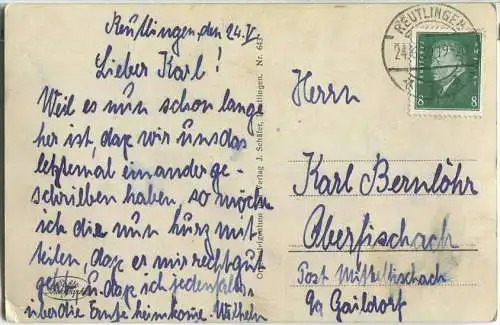 Reutlingen, den 24.V.
Lieber Karl!
Weil es nun schon lange
her ist, daß wir uns das
letztemal einander ge-
schrieben haben, so möchte
ich dir nun kurz mit-
teilen, daß es mir recht gut
geht, u. daß ich jedenfalls
über die Ernte heimkomme. Wilhelm
Verlag J. Schäfer, Reutlingen. Nr. 643
REUTLINGEN
DEUTSCHES REICH
8 8
Herrn
Karl Bernlöhr
Oberfischach
Post Mittelfischach
Gaildorf